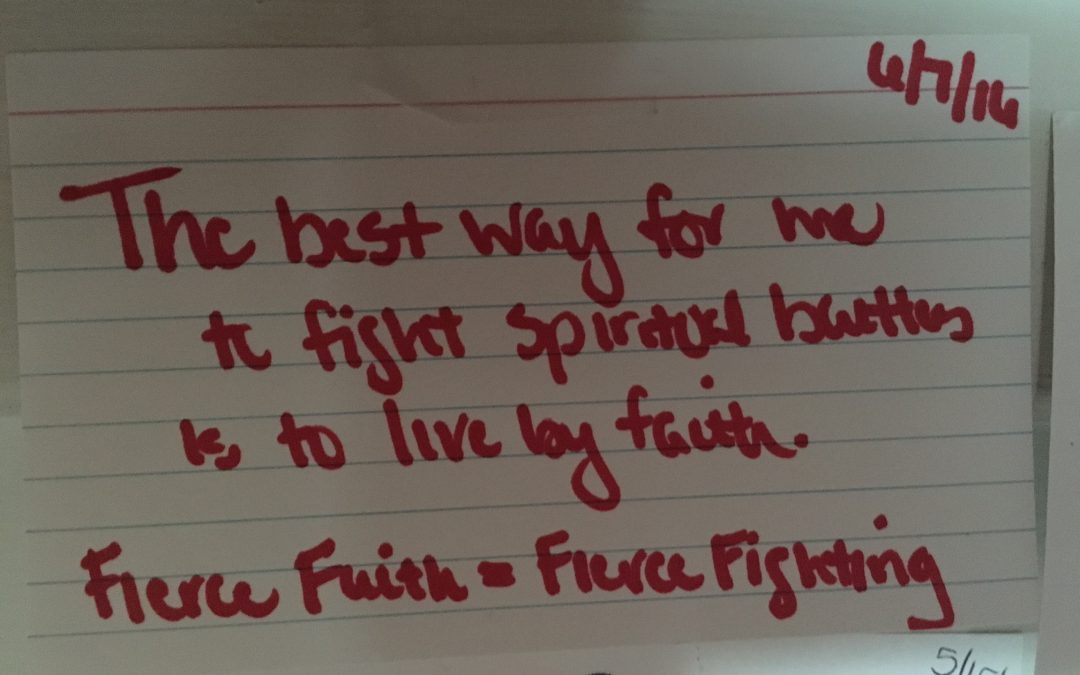 6/7/16
The best way for me
to fight spiritual battles
is to live by faith.
Fierce Faith = Fierce Fighting